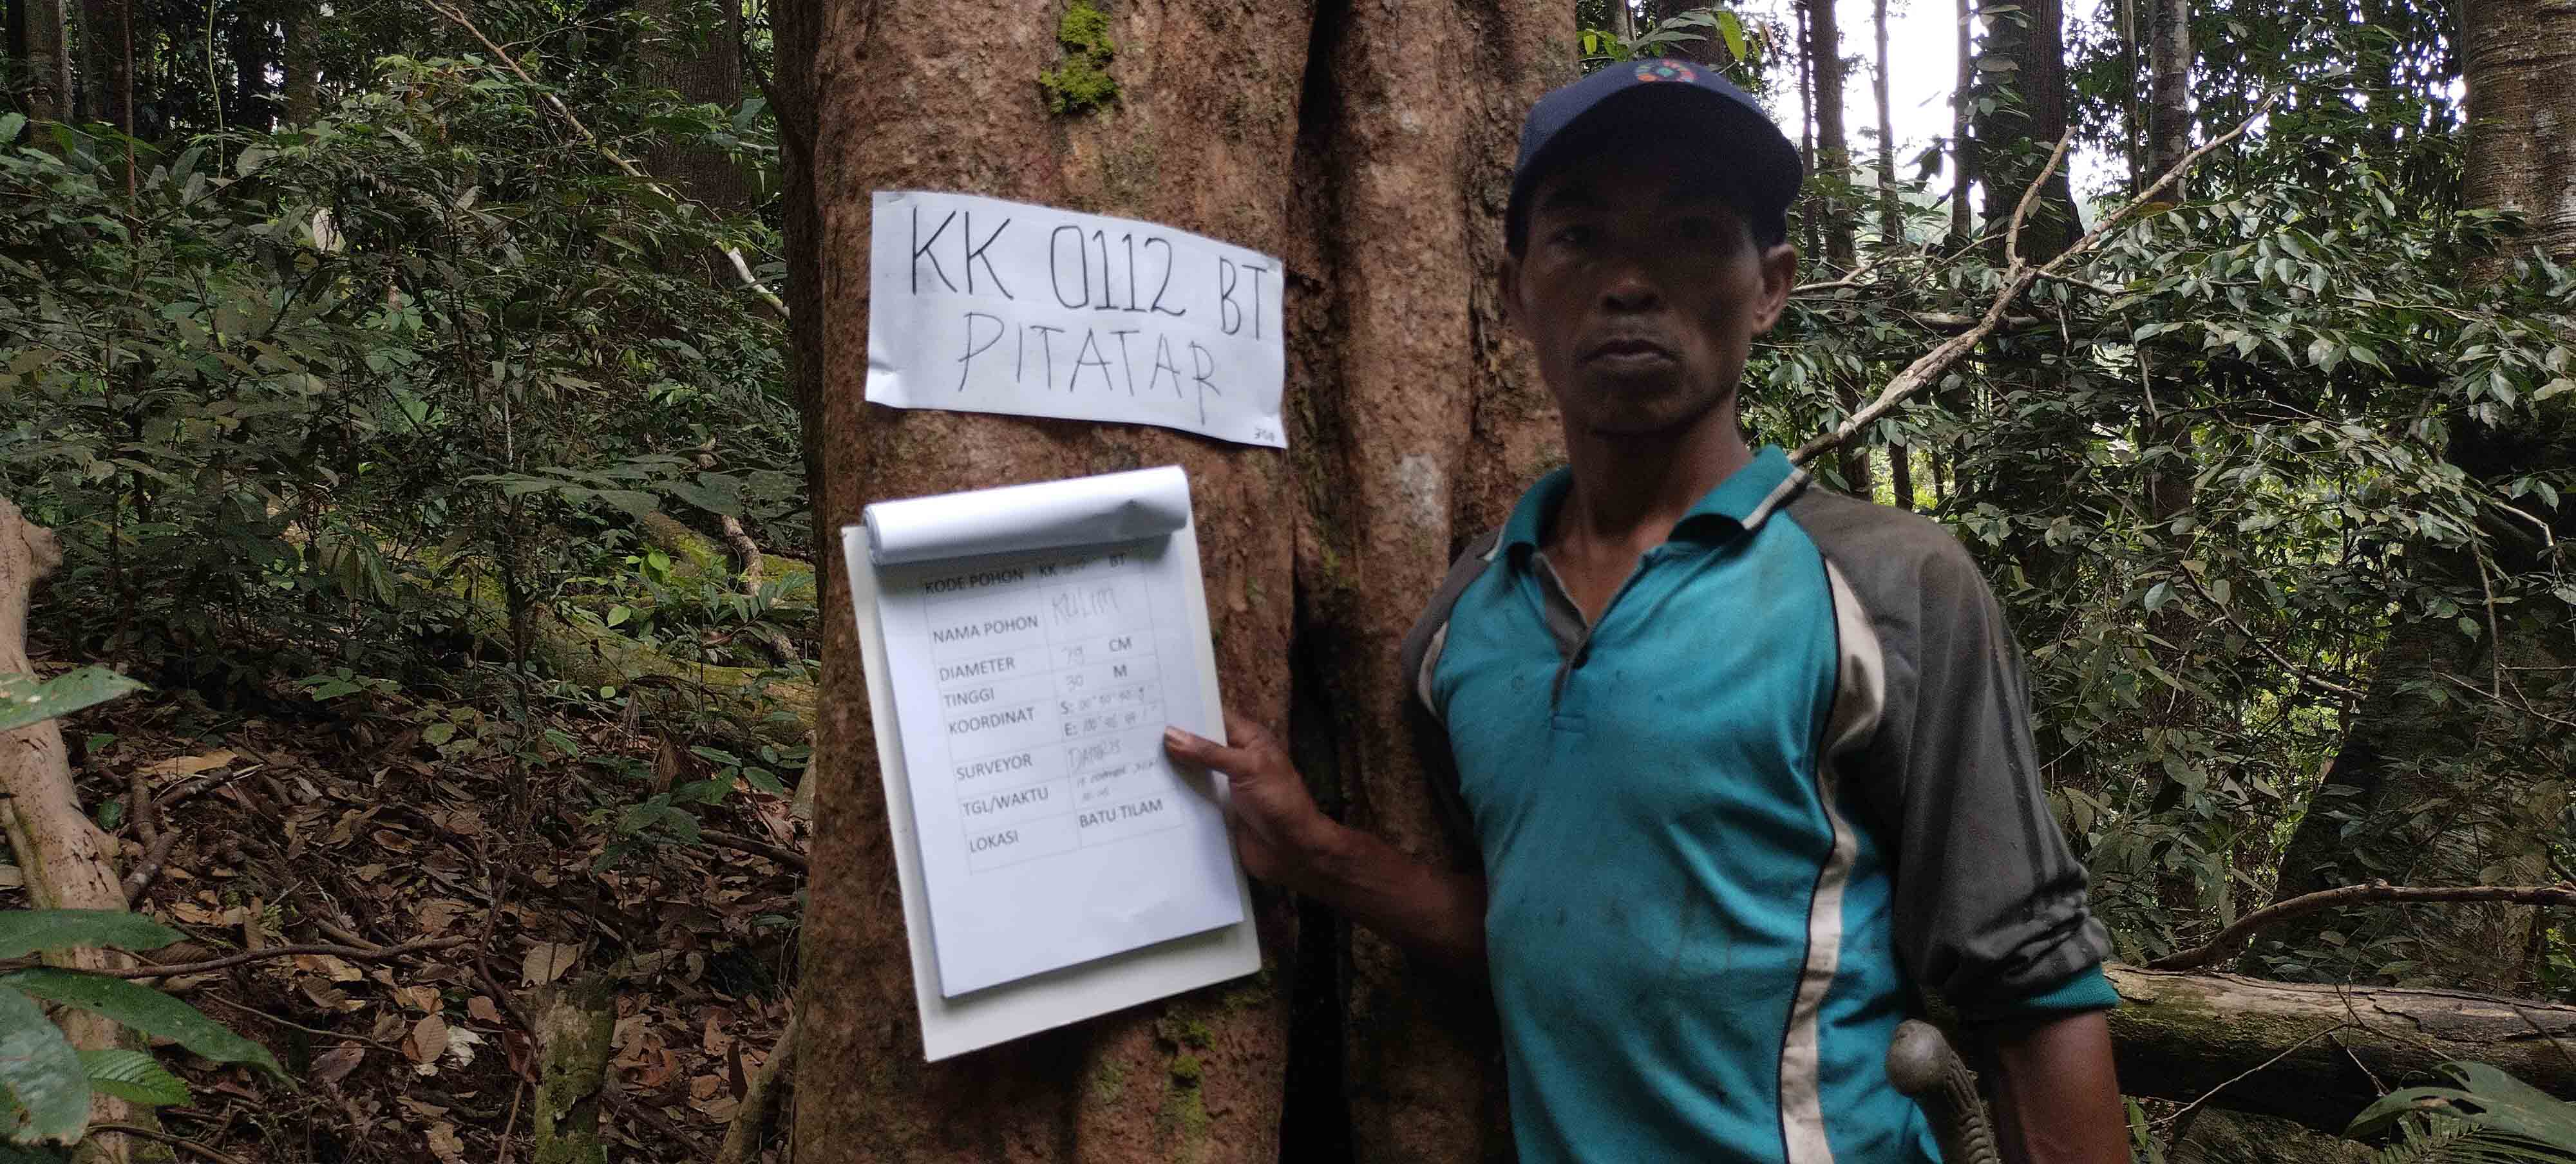 KK 0112 BT
PITATAR
KODE POHON KK BT
NAMA POHON KULIM
DIAMETER 79 CM
TINGGI 30 M
KOORDINAT S:
E:
SURVEYOR
TGL/WAKTU
LOKASI BATU TILAM